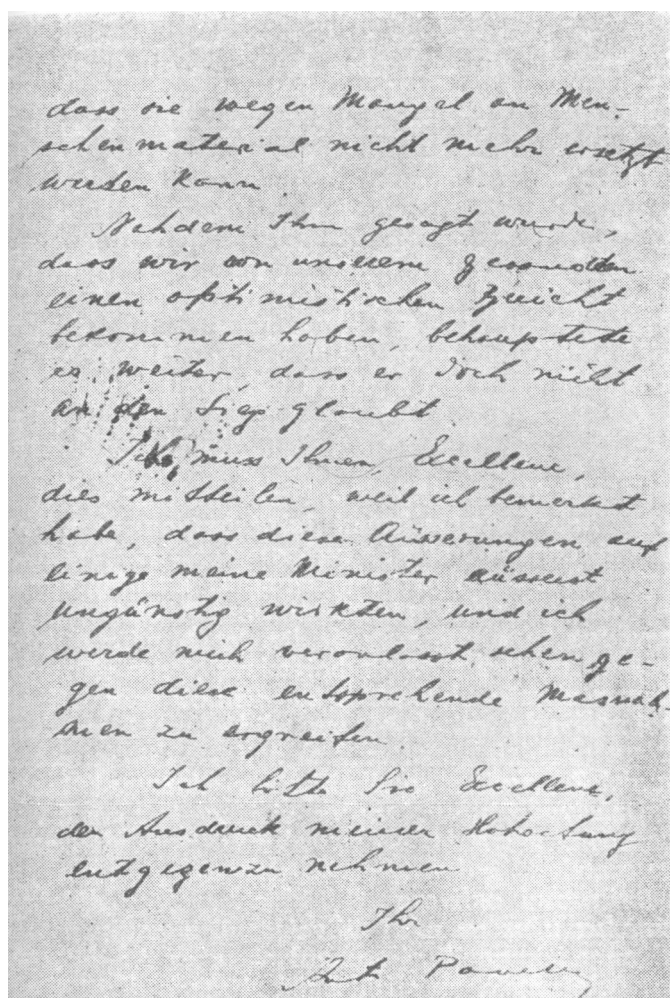 dass sie wegen Mangel an Men-
schenmaterial nicht mehr ersetzt
werden kann
Nachdem Ihm gesagt wurde,
dass wir von unserem Gesandten
einen optimistischen Bericht
bekommen haben, behauptete
er weiter, dass er doch nicht
an den Sieg glaubt
Ich muss Ihnen, Excellenc,
dies mitteilen, weil ich bemerkt
habe, dass diese Äusserungen auf
einige meine Minister äussest
ungünstig wirkten, und ich
werde mich veranlasst sehen ge-
gen diese entsprechende Masnah-
men zu ergreifen.
Ich bitte Sie Excellenc,
den Ausdruck meiner Hohachtung
entgegenzu nehmen
Ihr
Ante Pavelić